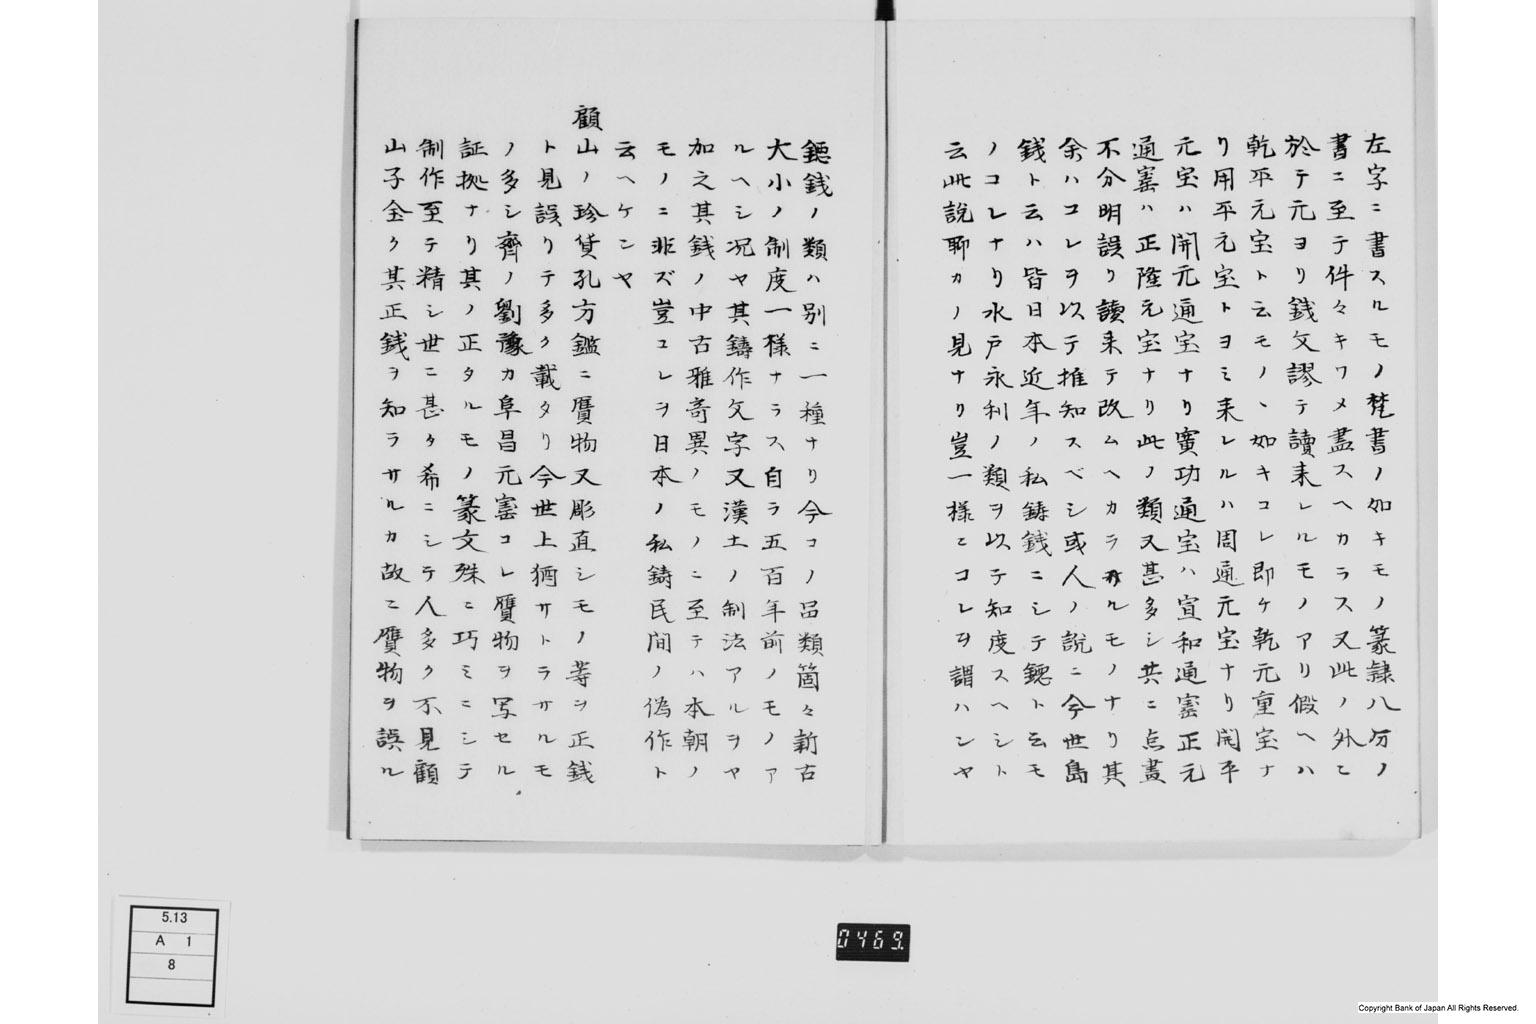 左字ニ書スルモノ梵書ノ如キモノ篆隷八分ノ
書ニ至テ件々キワメ盡スヘカラス又此ノ外ニ
於テ元ヨリ銭文謬テ讀来レルモノアリ假ヘハ
乾平元宝ト云モノヽ如キコレ即ケ乾元重宝ナ
リ用平元宝トヨミ来レルハ周通元宝ナリ開平
元宝ハ開元通宝ナリ寅功通宝ハ宣和通寚正元
通寚ハ正隆元宝ナリ此ノ類又甚多シ共ニ点畫
不分明誤リ讀来テ改ムヘカラサルモノナリ其
余ハコレヲ以テ推知スベシ或人ノ説ニ今世島
銭ト云ハ皆日本近年ノ私鋳銭ニシテ鐚ト云モ
ノコレナリ水戸永利ノ類ヲ以テ知度スヘシト
云此説聊カノ見ナリ豈一様ニコレヲ謂ハンヤ
鐚銭ノ類ハ別ニ一種ナリ今コノ品類箇々新古
大小ノ制度一様ナラス自ラ五百年前ノモノア
ルヘシ况ヤ其鑄作文字又漢土ノ制法アルヲヤ
加之其銭ノ中古雅奇異ノモノニ至テハ本朝ノ
モノニ非ズ豈コレヲ日本ノ私鋳民間ノ偽作ト
云ヘケンヤ
顧山ノ珍貨孔方鑑ニ贋物又彫直シモノ等ヲ正銭
ト見誤リテ多ク載タリ今世上猶サトラサルモ
ノ多シ齊ノ劉豫カ阜昌元寚コレ贋物ヲ写セル
証拠ナリ其ノ正タルモノ篆文殊ニ巧ミニシテ
制作至テ精シ世ニ甚タ希ニシテ人多ク不見顧
山子全ク其正銭ヲ知ラサルカ故ニ贋物ヲ誤ル
5.13
A 1
8
0469
Copyright Bank of Japan All Rights Reserved.